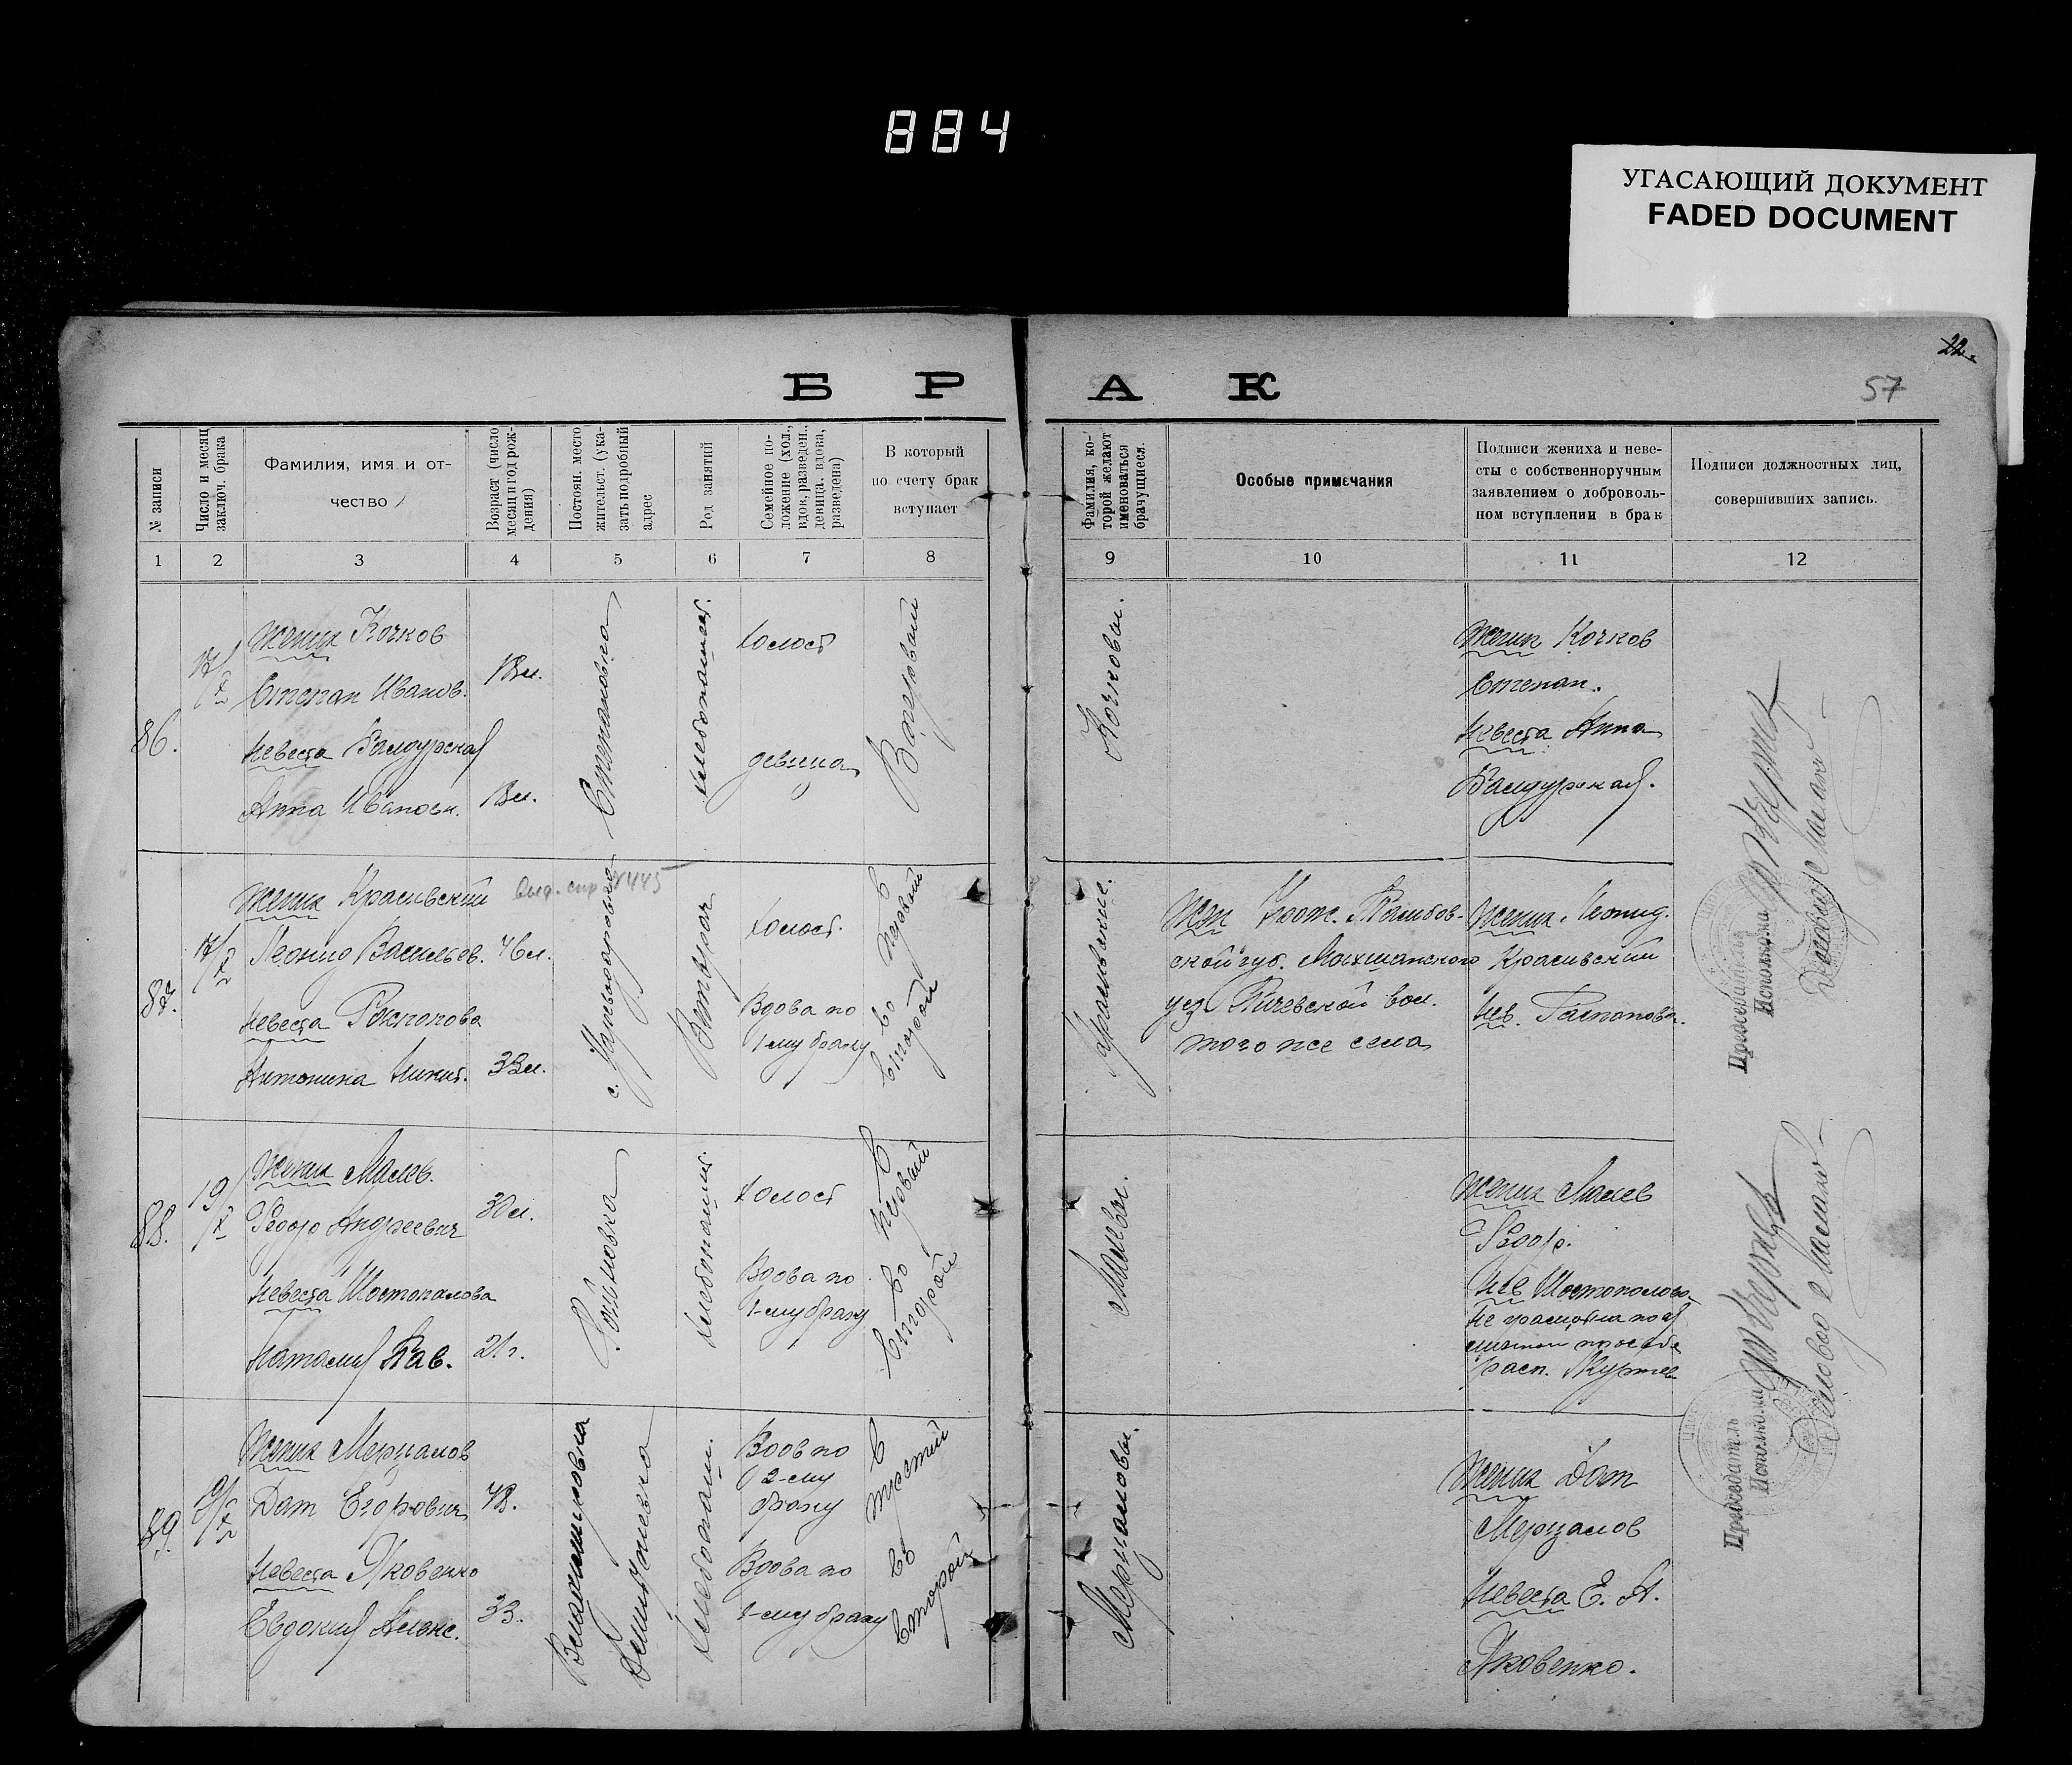 884
УГАСАЮЩИЙ ДОКУМЕНТ
FADED DOCUMENT
22.
57
БРАК
№ записи
Число и месяц
заключ. брака
Фамилия, имя и от-
чество
Возраст (число
месяц и год рож-
дения)
Постоян. место
жительст. (ука-
зать подробный
адрес
Род занятий
Семейное по-
ложение (хол.,
вдов. разведен.,
девица, вдова,
разведена)
В который
по счету брак
вступает
Фамилия, ко-
торой желают
именоваться
брачущиеся.
Особые примечания
Подписи жениха и неве-
сты с собственноручным
заявлением о доброволь-
ном вступлении в брак
Подписи должностных лиц,
совершивших запись.
1 2 3 4 5 6 7 8 9 10 11 12
86.
17/X
Жених Кочков
Степан Иванов.
18 л.
Невеста Бандурская
Анна Ивановн.
18 л.
Степановка
хлебопашест.
холост
девица
Кочковы.
Жених Кочков
Степан.
Невеста Анна
Бандурская.
87.
17/X
Жених Красивский
Леонид Васильев.
46 л.
Невеста
Антонина Никит.
33 л.
с.
холост.
Вдова по
1-му браку
В первый
во второй
Жен
ской губ. Мокшанского
уез. вол.
того же села
Жених Леонид.
Красивский
Нев.
88.
19/X
Жених Малев.
Федор Андреевич
30 л.
Невеста Шостопалова
Наталия Пав.
21 г.
Войновка
хлебопашест.
холост
Вдова по
1-му браку
В первый
во второй
Малевы.
Жених Малев
Федор.
Нев Шостополова
не грамотна по ея
личной просьбе
расп.
89.
19/X
Жених Мерцалов
Дат Егорович
48.
Невеста Яковенко
Евдокия Алекс.
33.
хлебопаш.
Вдов по
2-му
браку
Вдова по
1-му браку
В третий
во второй
Мерцаловы.
Жених Дат
Мерцалов
Невеста Е. А.
Яковенко.
Председатель
Исполкома
Председатель
Исполкома